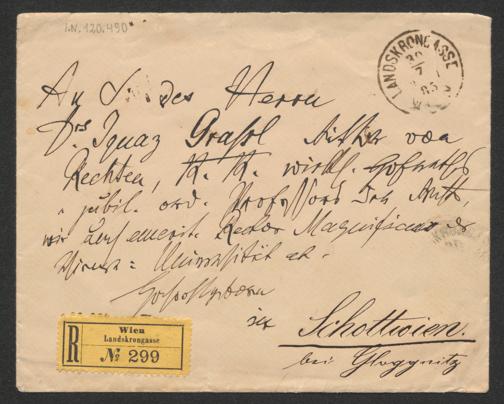 I.N. 120.490
LANDSKRONGASSE
30
7
85
An S. des Herrn
Drs Ignaz Grassl Ritter von
Rechten, K. K. wirkl. Hofraths
jubil. ord. Professors der
wir emerit. Rector Magnificus
Wiener Universität etc.
Hochwohlgeboren
in Schottwien.
bei Gloggnitz
R
Wien
Landskrongasse
№ 299